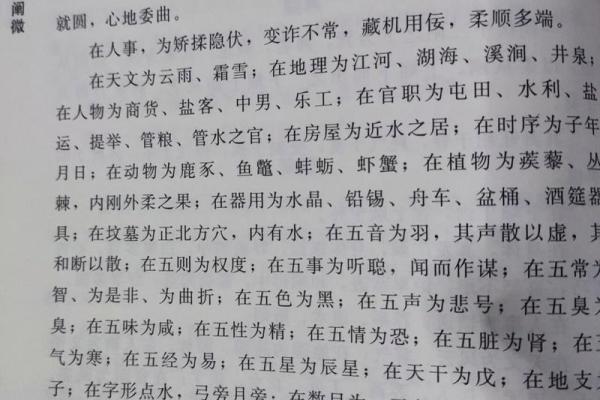 阐微
就圆，心地委曲。
在人事，为矫揉隐伏，变诈不常，藏机用佞，柔顺多端。
在天文为云雨、霜雪；在地理为江河、湖海、溪涧、井泉；
在人物为商货、盐客、中男、乐工；在官职为屯田、水利、盐
运、提举、管粮、管水之官；在房屋为近水之居；在时序为子年
月日；在动物为鹿豕、鱼鼈、蚌蛎、虾蟹；在植物为蒺藜、丛
棘，内刚外柔之果；在器用为水晶、铅锡、舟车、盆桶、酒筵器
具；在坟墓为正北方穴，内有水；在五音为羽，其声散以虚，其
和断以散；在五则为权度；在五事为听聪，闻而作谋；在五常为
智、为是非、为曲折；在五色为黑；在五声为悲号；在五臭为
臭；在五味为咸；在五性为精；在五情为恐；在五脏为肾；在五
气为寒；在五经为易；在五星为辰星；在天干为戊；在地支为
子；在字形点水，弓旁月旁；在数目为一